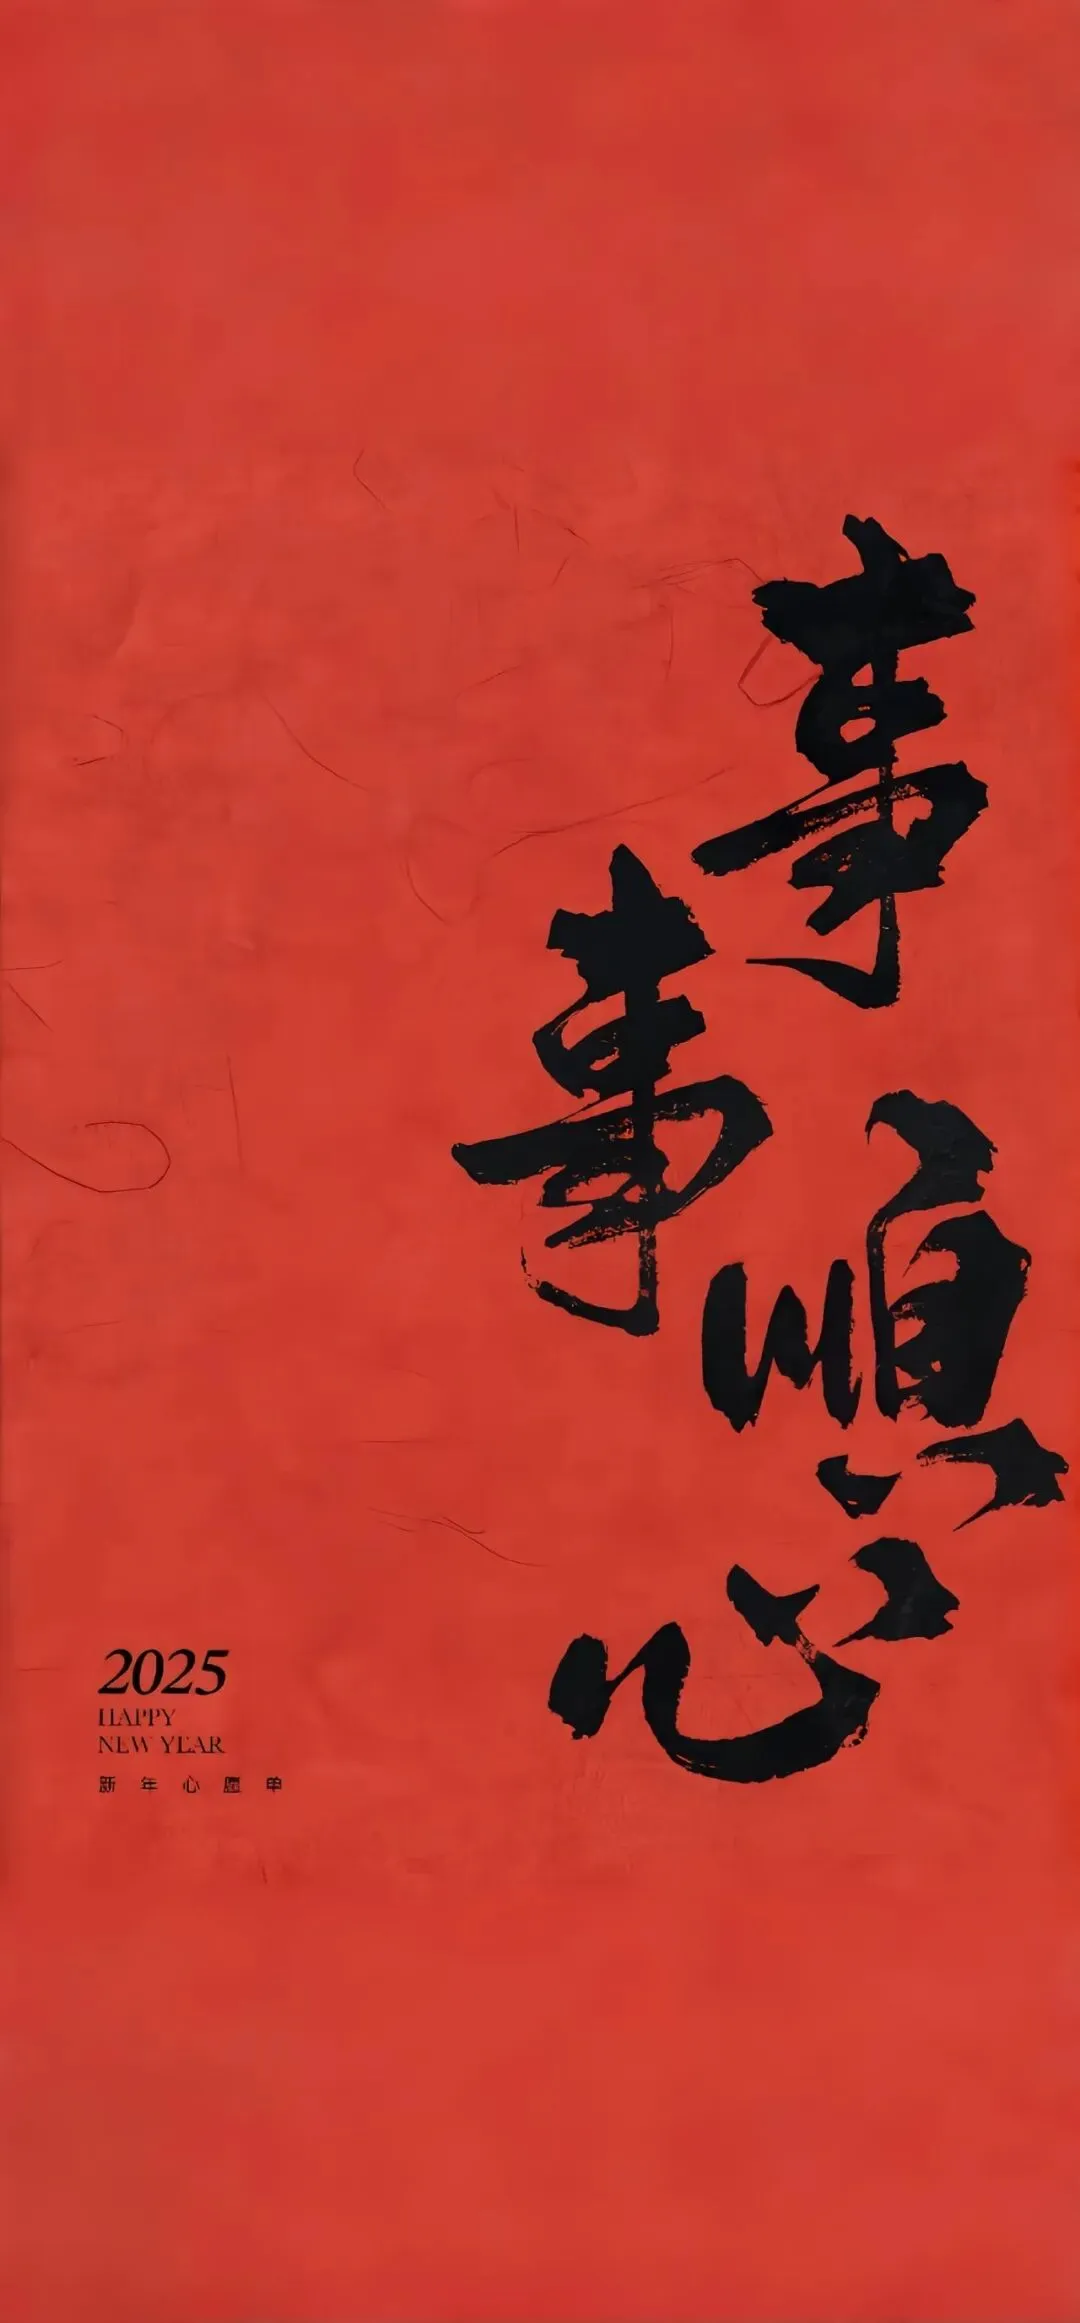 事事順心
2025
HAPPY
NEW YEAR
新年心愿单